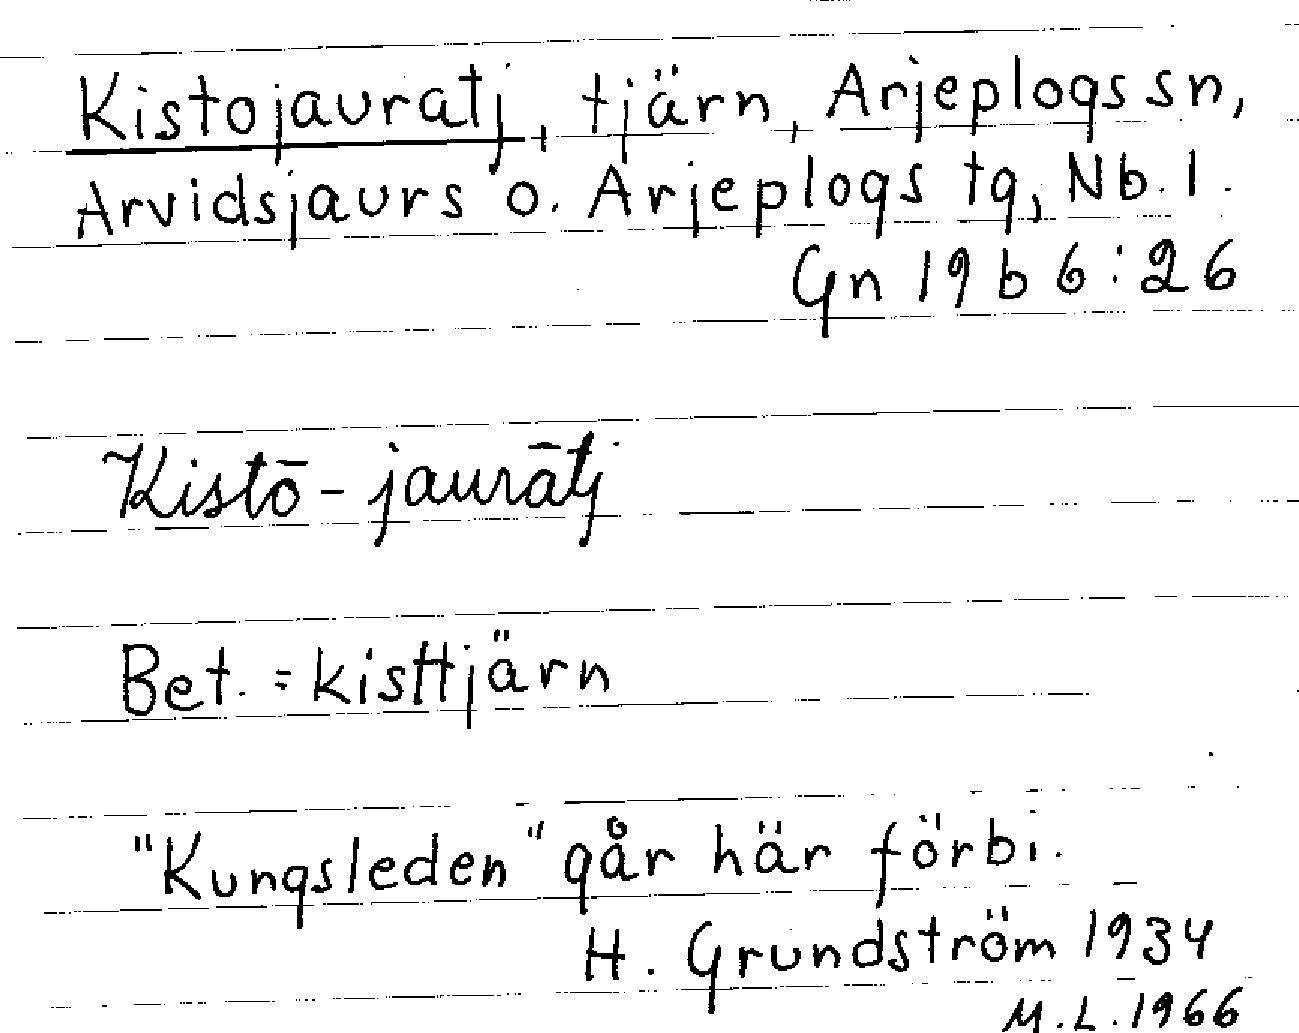 Kistojauratj, tjärn, Arjeplogs sn,
Arvidsjaurs o. Arjeplogs tg, Nb. l.
Gn 19 b 6:26
Kistō-jaurātj
Bet. = kisttjärn
"Kungsleden" går här förbi.
H. Grundström 1934
M.L. 1966